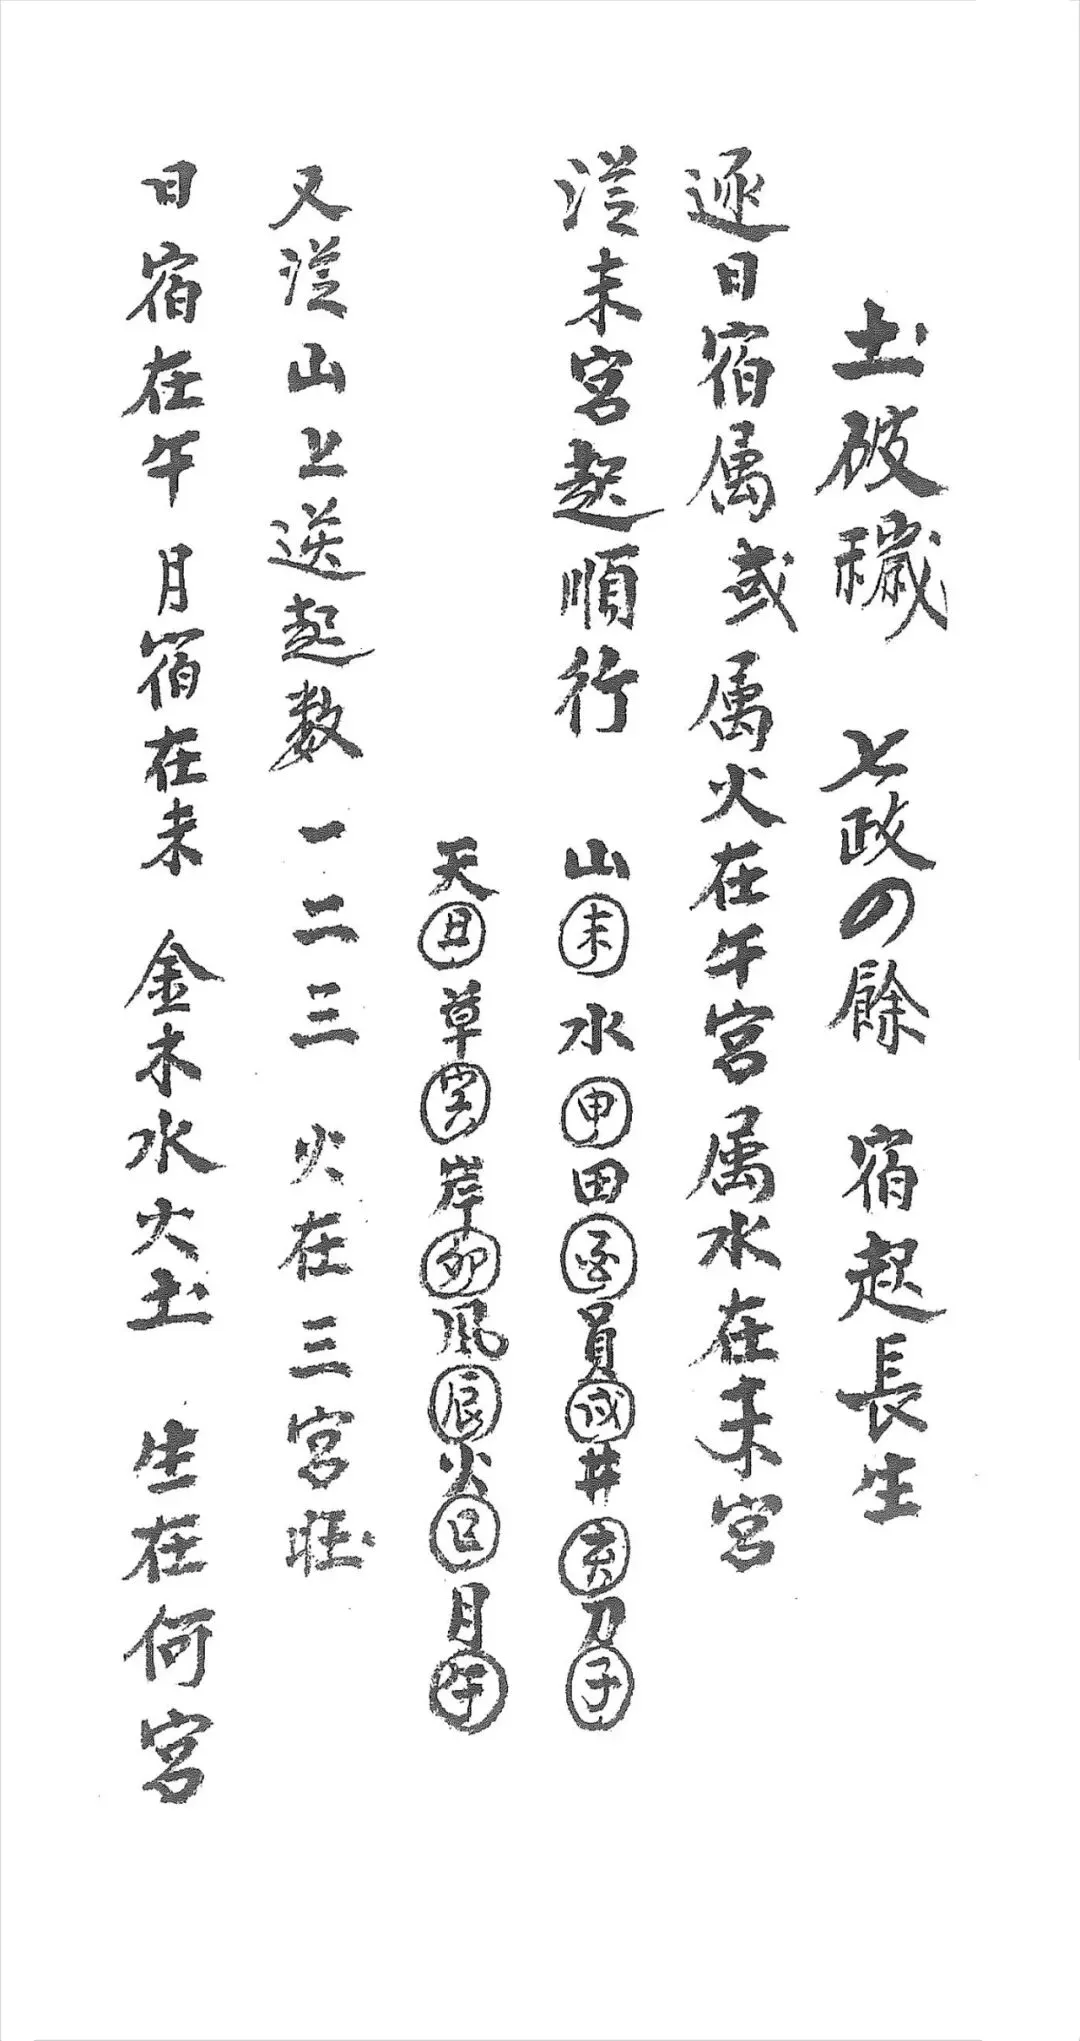 土破穢 七政の餘 宿起長生
逐日宿属或属火在午宮属水在未宮
從未宮起順行 山未水申田酉員戌井亥刀子
天丑草寅岸卯風辰火巳月午
又從山上送起数一二三 火在三宮旺
日宿在午 月宿在未 金木水火土 生在何宮